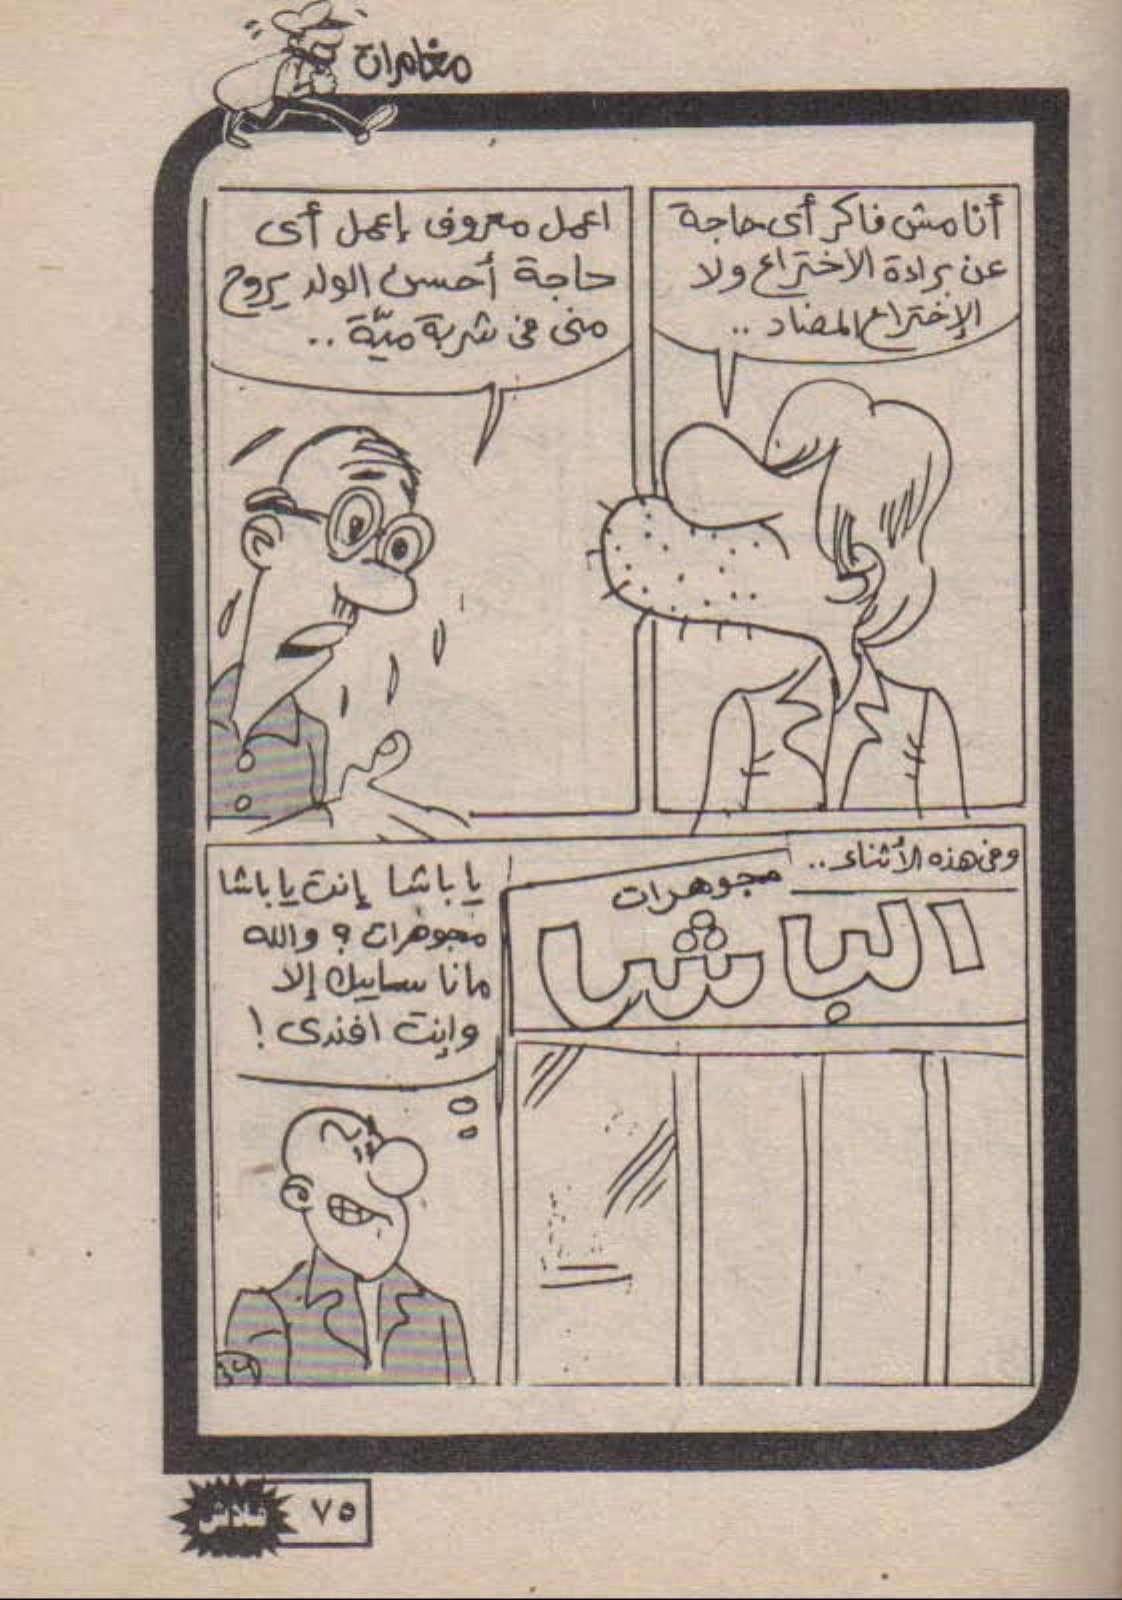 مغامرات
أنا مش فاكر أى حاجة
عن برادة الاختراع ولا
الإختراع المضاد ..
اعمل معروف إعمل أى
حاجة أحسن الولد يروح
منى فى شربة ميّة ..
وفى هذه الأثناء ..
مجوهرات
الباشا
يا باشا إنت يا باشا
مجوهرات ؟ والله
مانا سايبك إلا
وإنت افندى !
٣٤
٧٥
فلاش